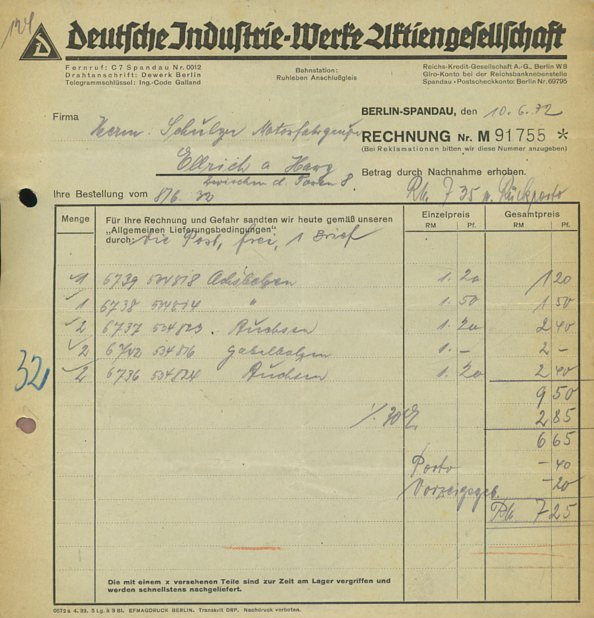 124
D
Deutsche Industrie-Werke Aktiengesellschaft
Fernruf: C7 Spandau Nr. 0012
Drahtanschrift: Dewerk Berlin
Telegrammschlüssel: Ing.-Code Galland
Bahnstation:
Ruhleben Anschlußgleis
Reichs-Kredit-Gesellschaft A.-G., Berlin W8
Giro-Konto bei der Reichsbanknebenstelle
Spandau · Postscheckkonto: Berlin Nr. 69795
BERLIN-SPANDAU, den 10.6.32
Firma
Herm. Schulze Motorfahrzeuge
RECHNUNG Nr. M 91755 *
(Bei Reklamationen bitten wir diese Nummer anzugeben)
Ellrich a Harz
zwischen d. Toren 8.
Betrag durch Nachnahme erhoben.
Ihre Bestellung vom 8/6. 32
Rm. 7 35 Rückporto
Menge
Für Ihre Rechnung und Gefahr sandten wir heute gemäß unseren
„Allgemeinen Lieferungsbedingungen"
durch: die Post, frei, 1 Brief
Einzelpreis
RM Pf.
Gesamtpreis
RM Pf.
1 6739 504818 Achsbolzen 1. 20 1 20
1 6738 " 1. 50 1 50
2 6737 504823 Buchsen 1. 20 2 40
2 504816 Gabelbolzen 1. – 2 –
2 6736 504824 Buchsen 1. 20 2 40
32
9 50
./. 30% 2 85
6 65
Porto – 40
Vorzeigegeb. – 20
Rm 7 25
Die mit einem x versehenen Teile sind zur Zeit am Lager vergriffen und
werden schnellstens nachgeliefert.
EFMAGDRUCK BERLIN. Transkrit DRP. Nachdruck verboten.